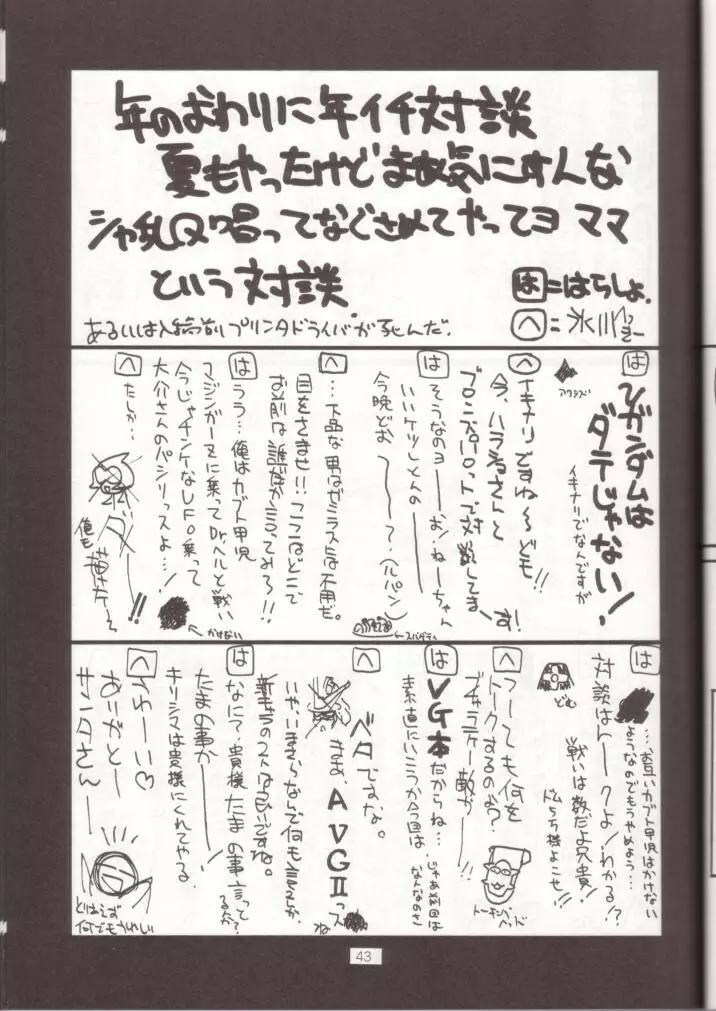 年のおわりに年イチ対談
夏もやったけどまあ気にすんな
シャ乱Q唱ってなぐさめてやってヨ ママ
という対談
は=はらしょ.
へ=氷川
あるいは入稿前プリンタドライバが死んだ.
は
ひガンダムは
ダテじゃない!
イキナリでなんですが
アクシズ
へ
イキナリですね〜ども!!
今、ハラショさんと
ブロンズパロットで対談してま〜す!
は
そうなのヨーーお!ねーちゃん
いいケツしとんのーー
今晩どおーー?
へ
…下品な男はゼミラスには不用だ。
目をさませ!!ここはどこで
お前は誰だか言ってみろ!!
は
うう…俺はカブト甲児
マジンガーZに乗ってDr.ヘルと戦い
今じゃチンケなUFO乗って
大介さんのパシリっスよ…!
かけない
へ
たしか…
ダーー!!
俺も描けた〜
は
…お互いカブト甲児はかけない
ようなのでもうやめよう…
対談はトークよ!わかる!?
戦いは数だよ兄貴!
ドムらち機よこせ!!
どむ
へ
つーても何を
トークするのか?
ブチャラティー敵かーー!!
トーキングヘッド
は
VG本だからね…
素直にいこうか今回は
じゃあ前回は
なんなのさ
へ
ベタですな。
きまぁAVGⅡっスね
いや、いまさらなんで何も言えんが、
新キャラの2人は良いですね。
は
なにて!貴様たまの事言ってるか?
たまの事かーー!
キリシマは貴様にくれてやる
へ
うわーい♡
ありがとーー
サンタさんーー
とりあえず
何でもうれしい
43